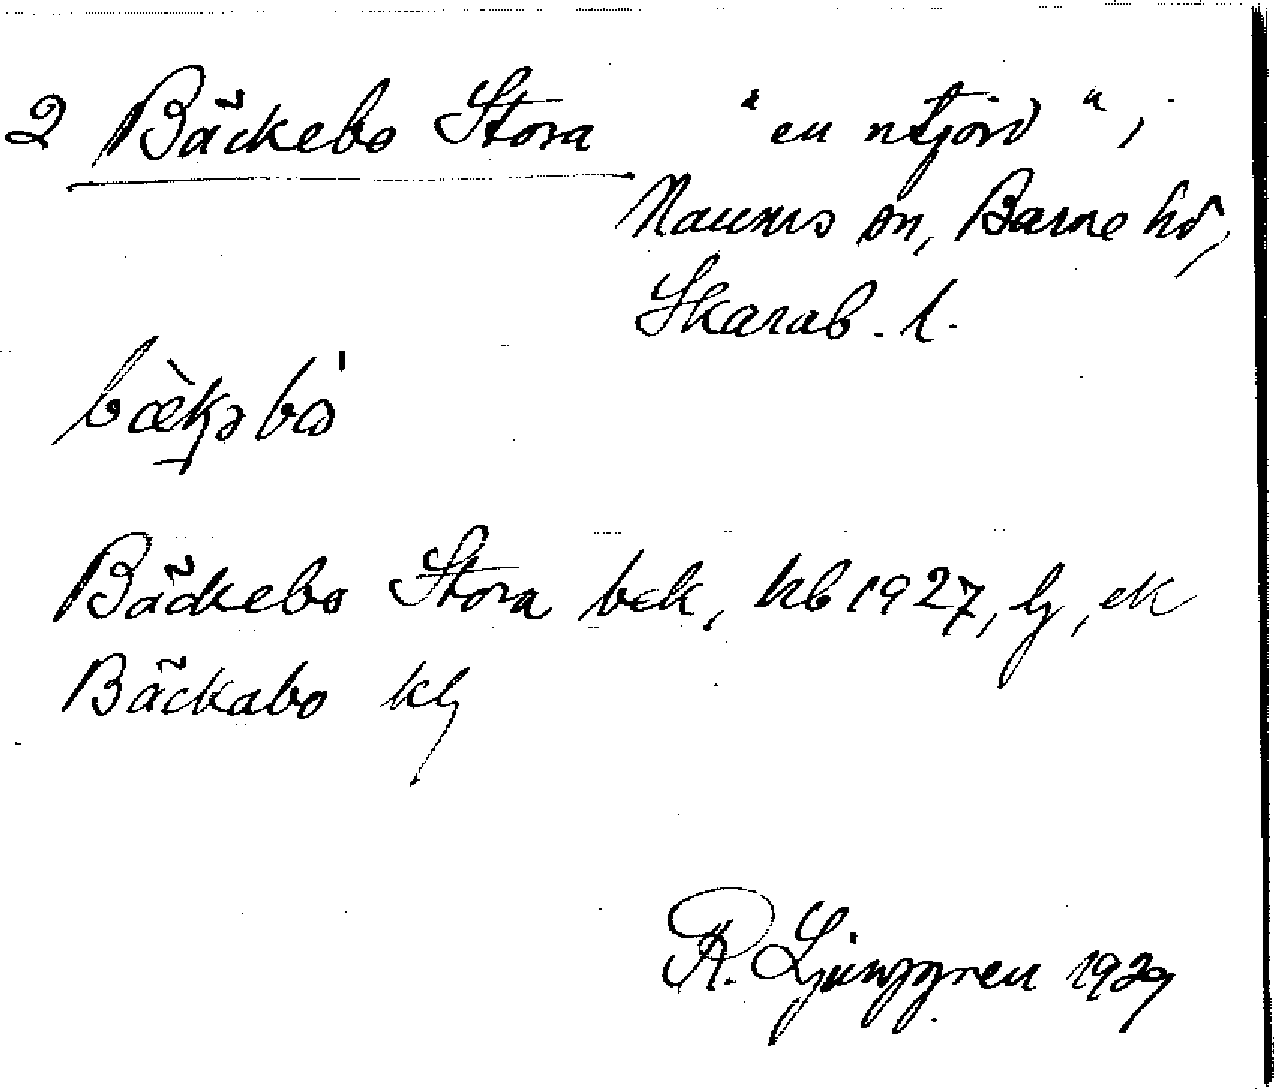 2 Bäckebo Stora "en utjord" i
Naums sn, Barne hd,
Skarab. l.
bæ̀kəbó
Bäckebo Stora bek, kb 1927, lj, ek
Bäckabo
R. Ljunggren 1929